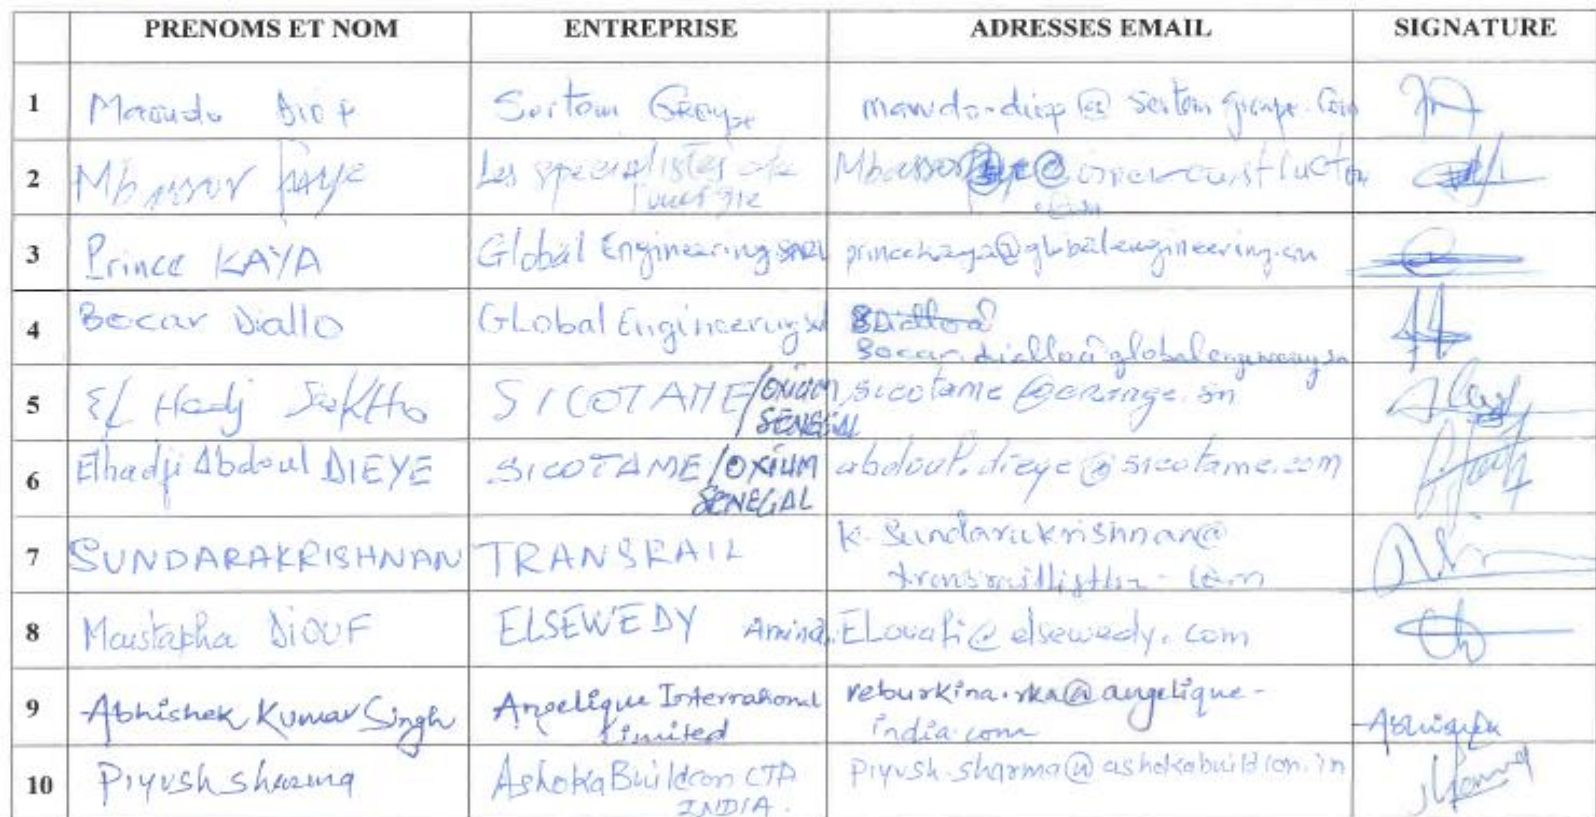 PRENOMS ET NOM ENTREPRISE ADRESSES EMAIL SIGNATURE
1 Maoudo Diop Sertem Groupe mawdo-diop@sertemgroupe.com
2 Mbassor FAYE Les specialistes de
l'energie
3 Prince KAYA Global Engineering SARL princekaya@globalengineering.sn
4 Bocar Diallo GLobal Engineering
Bocar.diallo@globalengineering.sn
5 El Hadj SakHo SICOTAME/OXIUM sicotame@orange.sn
SENEGAL
6 Elhadji Abdoul DIEYE SICOTAME/OXIUM abdoul.dieye@sicotame.com
SENEGAL
7 SUNDARAKRISHNAN TRANSRAIL K.Sundarakrishnan@
8 Moustapha DIOUF ELSEWEDY Amina.ELouafi@elsewedy.com
9 Abhishek Kumar Singh Angelique International reburkina.rka@angelique-
Limited india.com
10 Piyush sharma Ashoka Buildcon LTD piyush.sharma@ashokabuildcon.in
INDIA.